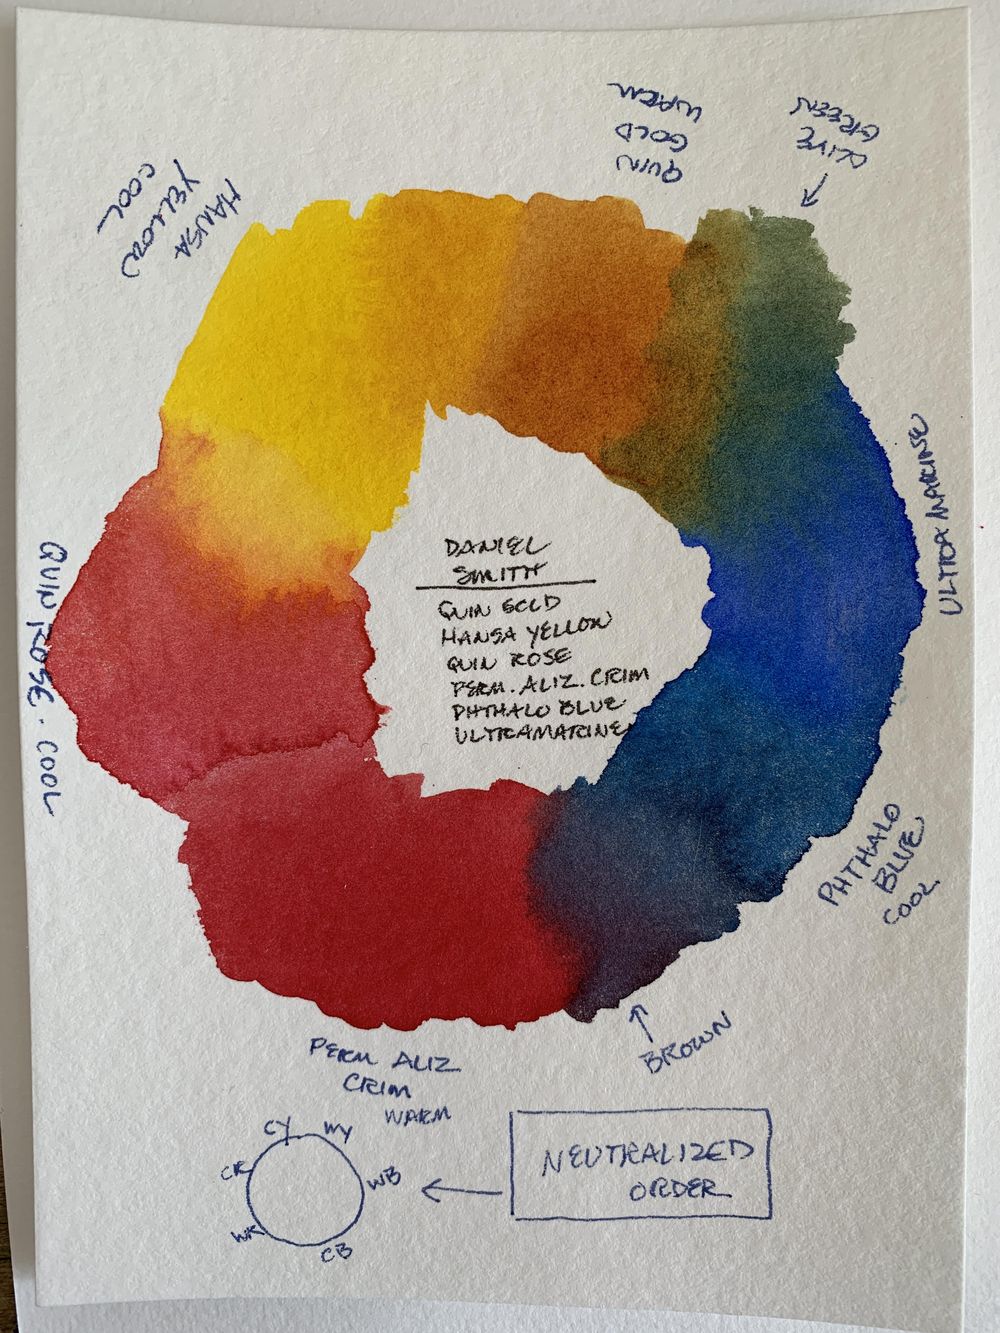 HANSA
YELLOW
COOL
QUIN
GOLD
WARM
OLIVE
GREEN
ULTRAMARINE
PHTHALO
BLUE
COOL
BROWN
PERM ALIZ
CRIM
WARM
QUIN ROSE · COOL
DANIEL
SMITH
QUIN GOLD
HANSA YELLOW
QUIN ROSE
PERM. ALIZ. CRIM
PHTHALO BLUE
ULTRAMARINE
CY
WY
WB
CB
WR
CR
NEUTRALIZED
ORDER